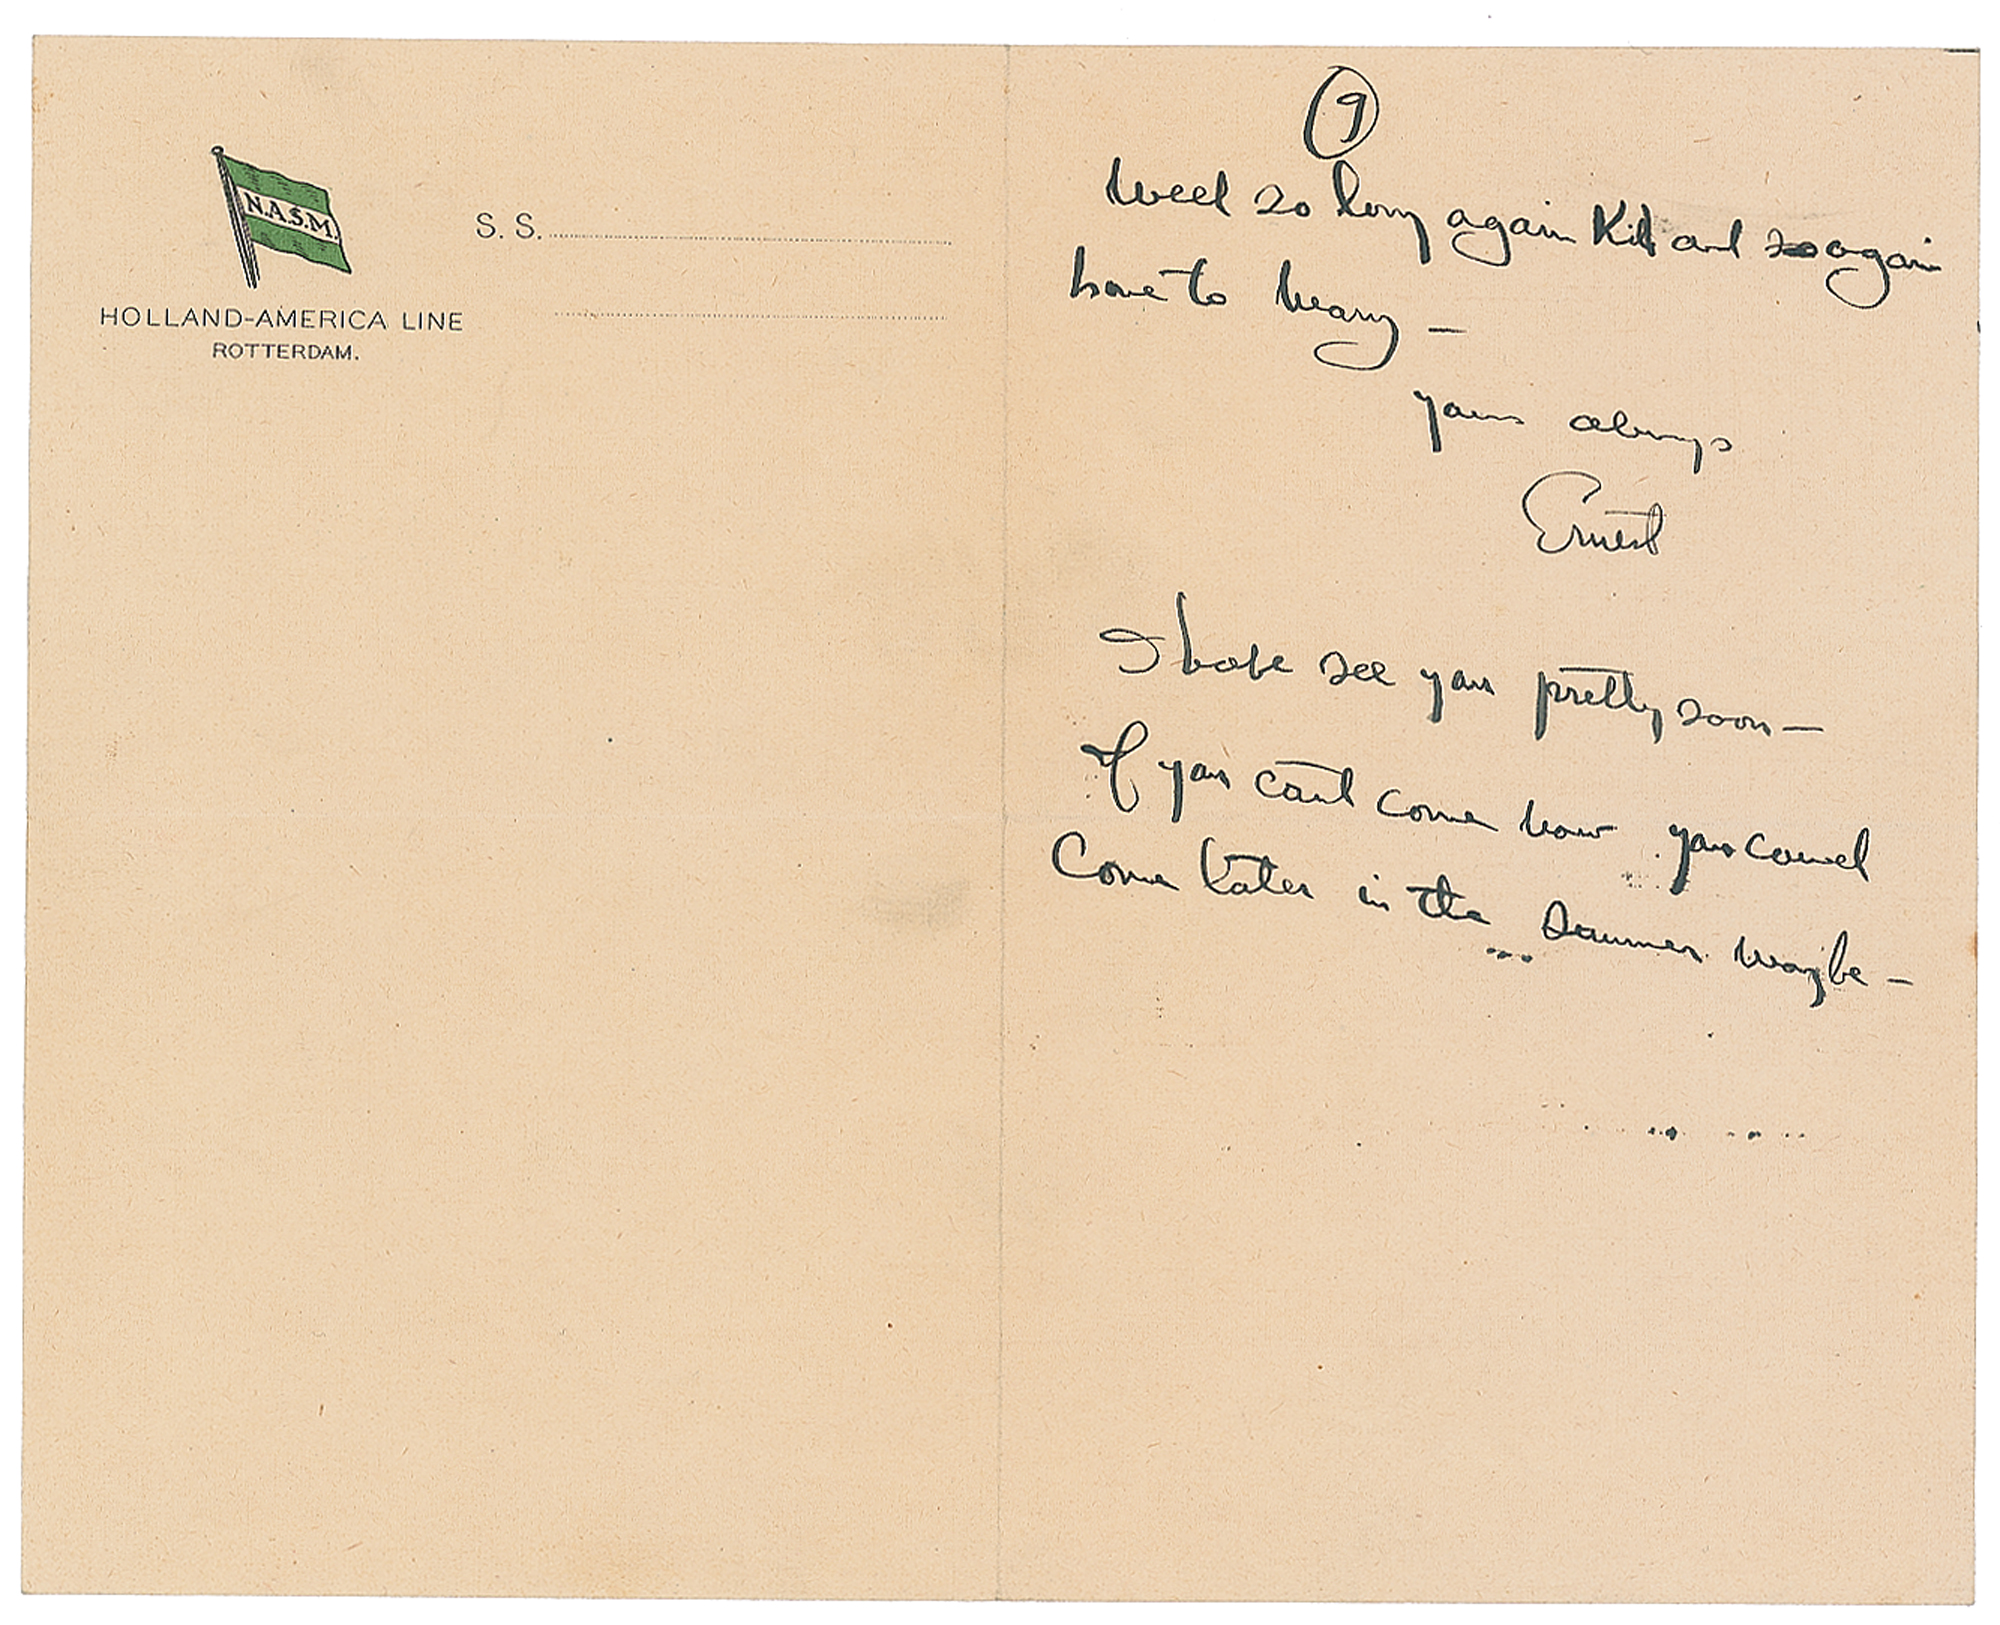 N.A.S.M.
S. S.
HOLLAND-AMERICA LINE
ROTTERDAM.
9
Well so long again Kid and so again
love to Mary —
yours always
Ernest
I hope see you pretty soon —
If you cant come now you could
Come later in the Summer maybe —